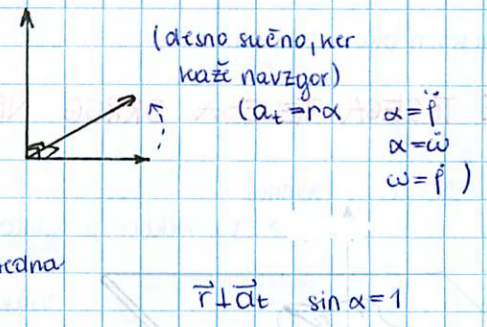 (desno sučno, ker
kaže navzgor)
(a_t = rα α = φ̈
α = ω̇
ω = φ̇ )
edna
r⃗ ⊥ a⃗_t sin α = 1